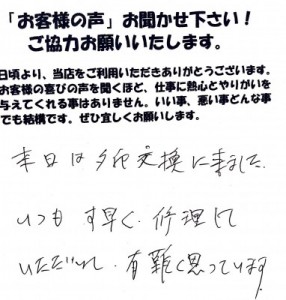 「お客様の声」お聞かせ下さい！
ご協力お願いいたします。
日頃より、当店をご利用いただきありがとうございます。
お客様の喜びの声を聞くほど、仕事に熱心とやりがいを
与えてくれる事はありません。いい事、悪い事どんな事
でも結構です。ぜひ宜しくお願いします。
本日は 交換に来ました.
いつも す早く 修理して
いただいて、有難く思っています